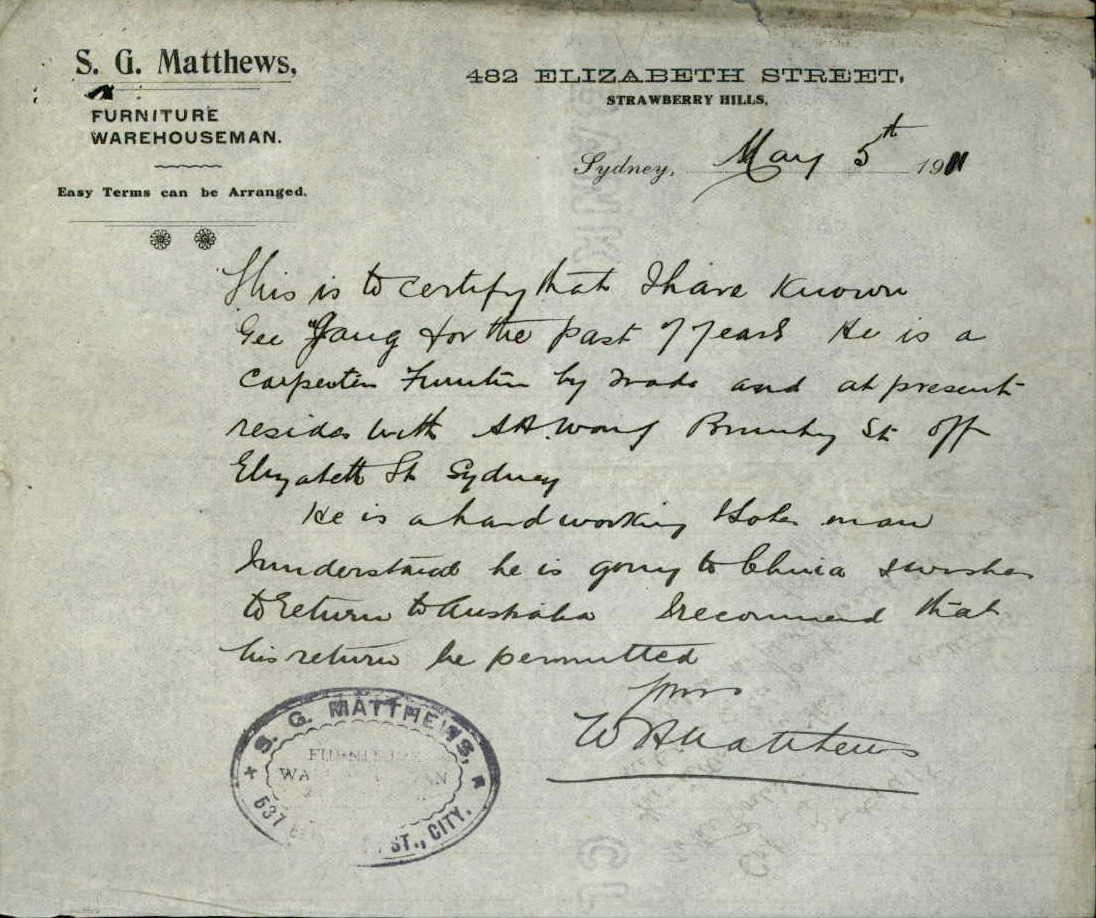 S. G. Matthews,
FURNITURE
WAREHOUSEMAN.
Easy Terms can be Arranged.
482 ELIZABETH STREET,
STRAWBERRY HILLS,
Sydney, May 5th 1911
This is to certify that I have known
Gee Jang for the past 7 years He is a
carpenter Furniture by trade and at present
resides with A.H. Wong St off
Elizabeth St Sydney
He is a hard working sober man
I understand he is going to China & wishes
to return to Australia I recommend that
his return be permitted
Yours
W H Matthews
S. G. MATTHEWS,
537 ST., CITY.